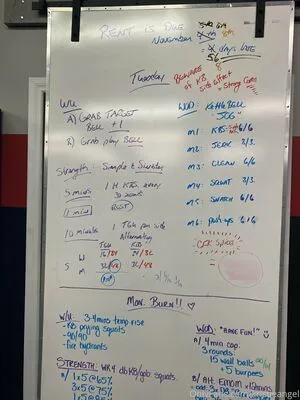 RENT IS DUE
November
8th
days LATE
Tuesday
BEWARE
of KB
side effect
+ Strong Core
WU
A) GRAB TARGET
BELL +1
B) Grab play BELL
Strength: Simple & Sinister
5 mins 1 H KBS every
30 secs
1 min REST
10 minute 1 TGU per side
Alternating
TGU KBS
W 16/24 24/32
S M 32/48 32/48
WOD: KETTLEBELL
"JOG"
M1: KBS 6/6
M2: JERK 3/3
M3: CLEAN 6/6
M4: SQUAT 3/3
M5: SNATCH 6/6
M6: pushups 6/6
Mon. Burn!! ♡
W/U: 3-4mins temp rise
-KB prying squats
-90/90
-fire hydrants
STRENGTH: WK4 db/KB/gob. squats
B/ 1x5@65%
3x5@75%
1x5@
WOD: "HAVE FUN!"
A/ 4 min cap.
3 rounds:
15 wall balls
+ 5 burpees
B/ Alt. EMOM x12mins